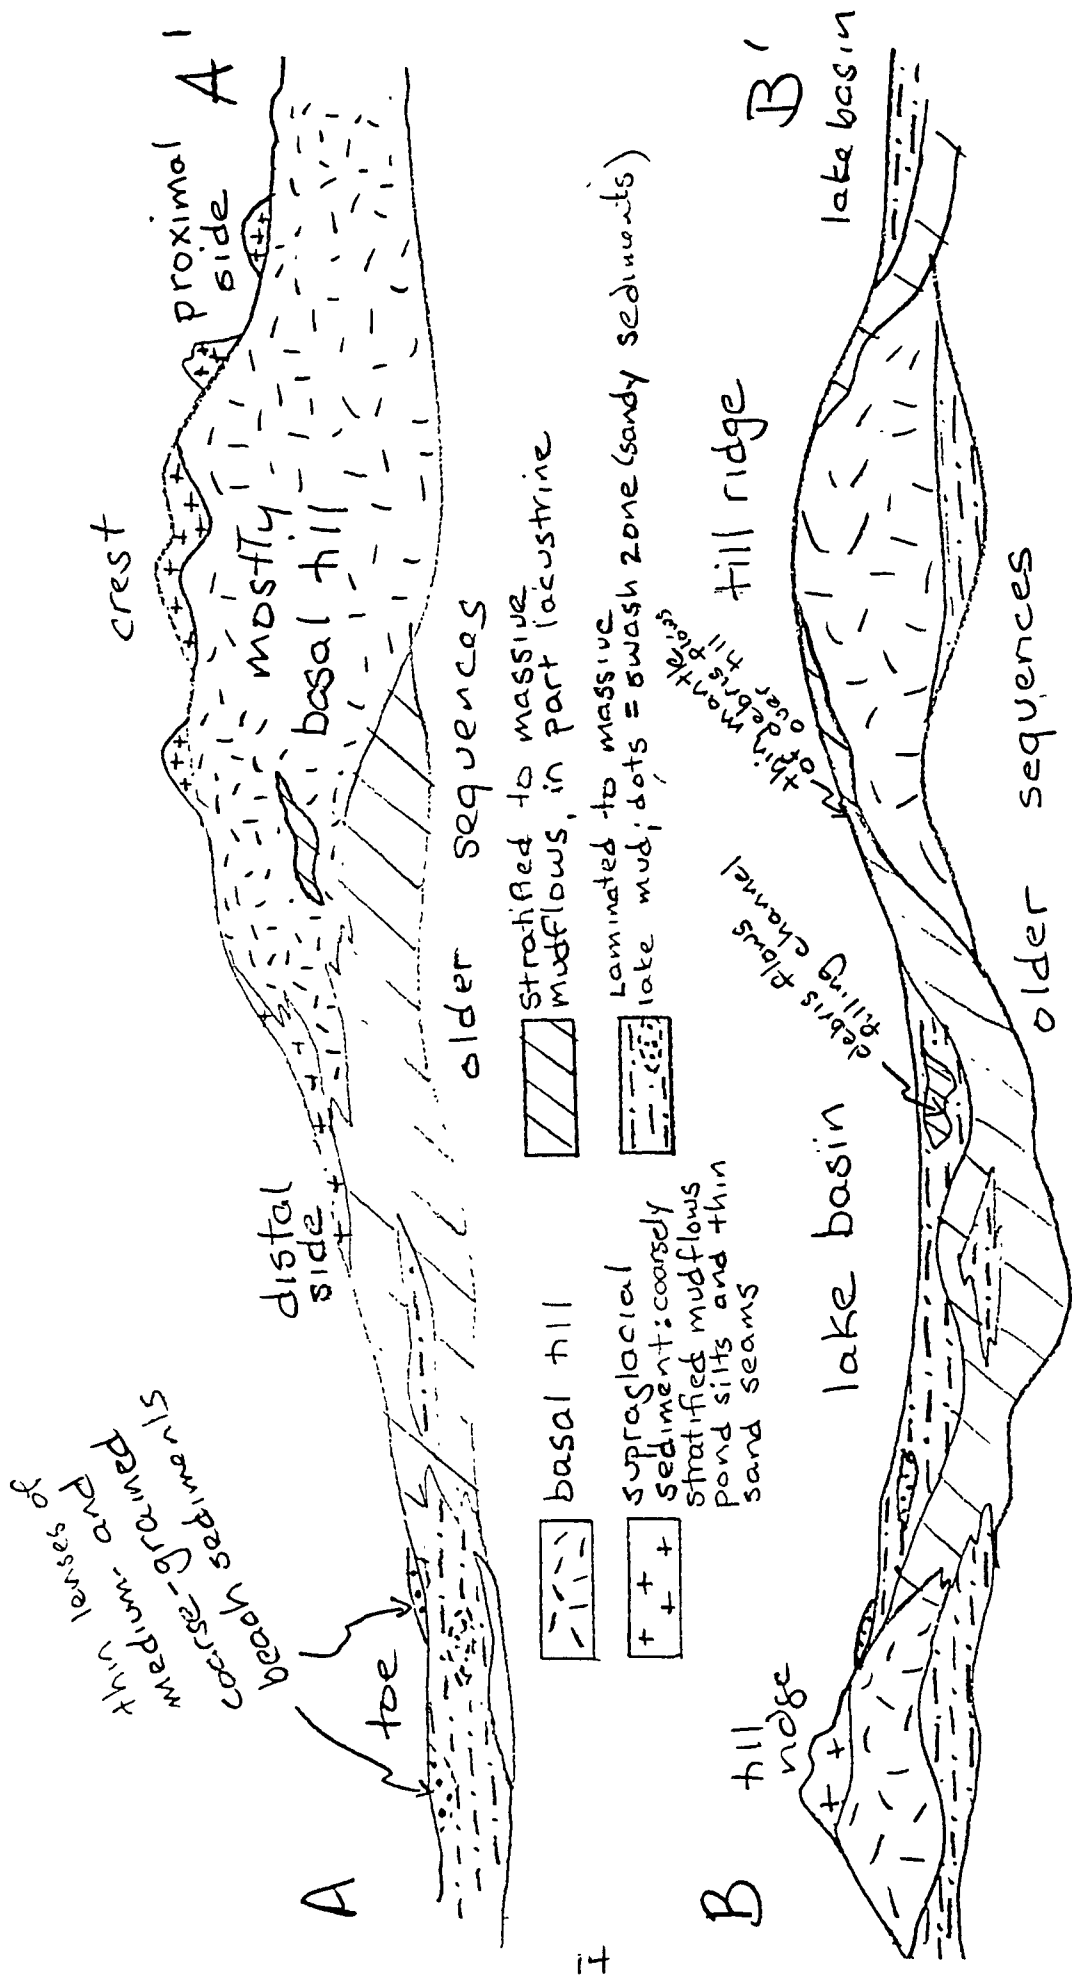 A
A'
thin lenses of
medium- and
coarse-grained
beach sediments
toe
distal
side
crest
proximal
side
mostly
basal till
older sequences
basal till
supraglacial
sediment: coarsely
stratified mudflows
pond silts and thin
sand seams
stratified to massive
mudflows, in part lacustrine
Laminated to massive
lake mud; dots = swash zone (sandy sediments)
B
B'
till
ridge
lake basin
debris flows
filling channel
thin mantle
of debris flows
over till
till ridge
lake basin
older sequences